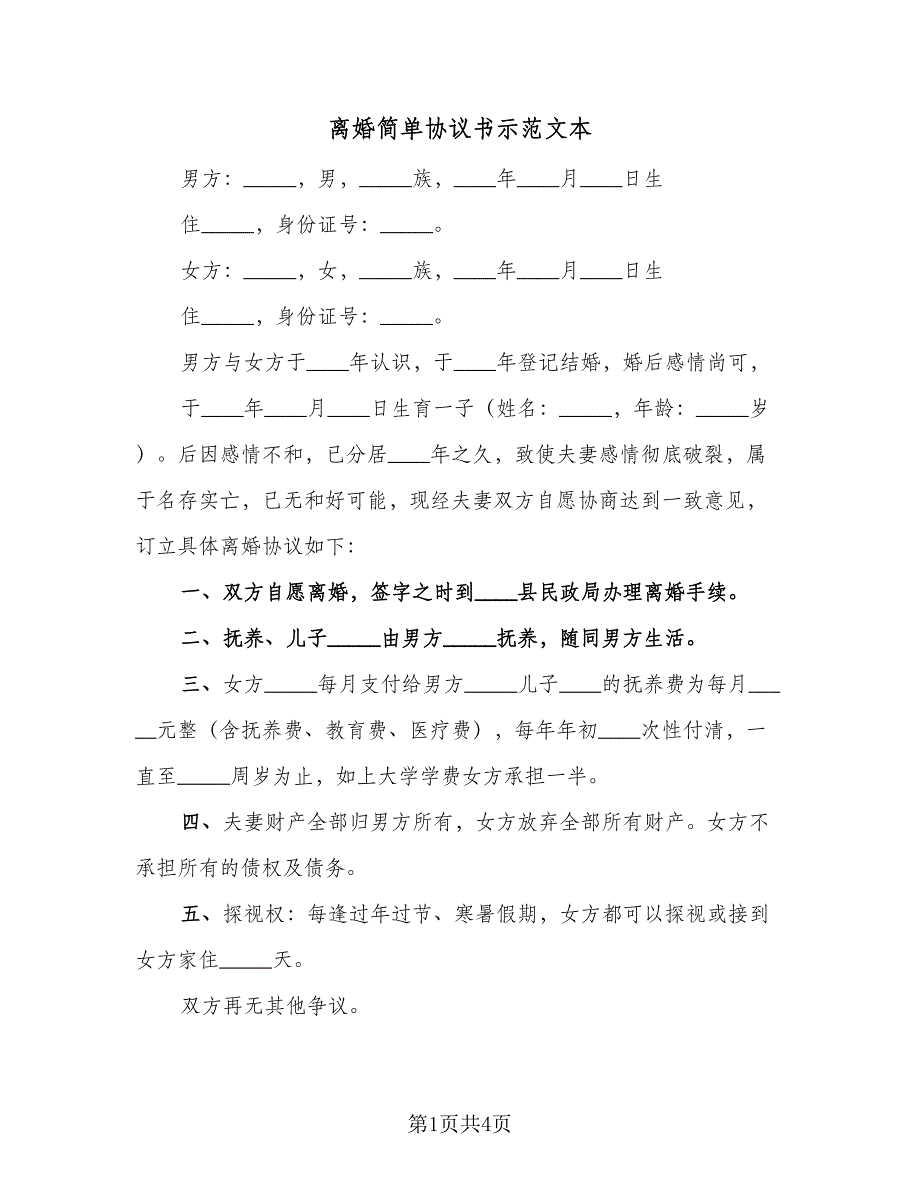 离婚简单协议书示范文本
男方：_____，男，_____族，____年____月____日生
住_____，身份证号：_____。
女方：_____，女，_____族，____年____月____日生
住_____，身份证号：_____。
男方与女方于____年认识，于____年登记结婚，婚后感情尚可，
于____年____月____日生育一子（姓名：_____，年龄：_____岁
）。后因感情不和，已分居____年之久，致使夫妻感情彻底破裂，属
于名存实亡，已无和好可能，现经夫妻双方自愿协商达到一致意见，
订立具体离婚协议如下：
一、双方自愿离婚，签字之时到____县民政局办理离婚手续。
二、抚养、儿子_____由男方_____抚养，随同男方生活。
三、女方_____每月支付给男方_____儿子____的抚养费为每月___
__元整（含抚养费、教育费、医疗费），每年年初____次性付清，一
直至_____周岁为止，如上大学学费女方承担一半。
四、夫妻财产全部归男方所有，女方放弃全部所有财产。女方不
承担所有的债权及债务。
五、探视权：每逢过年过节、寒暑假期，女方都可以探视或接到
女方家住_____天。
双方再无其他争议。
第1页共4页